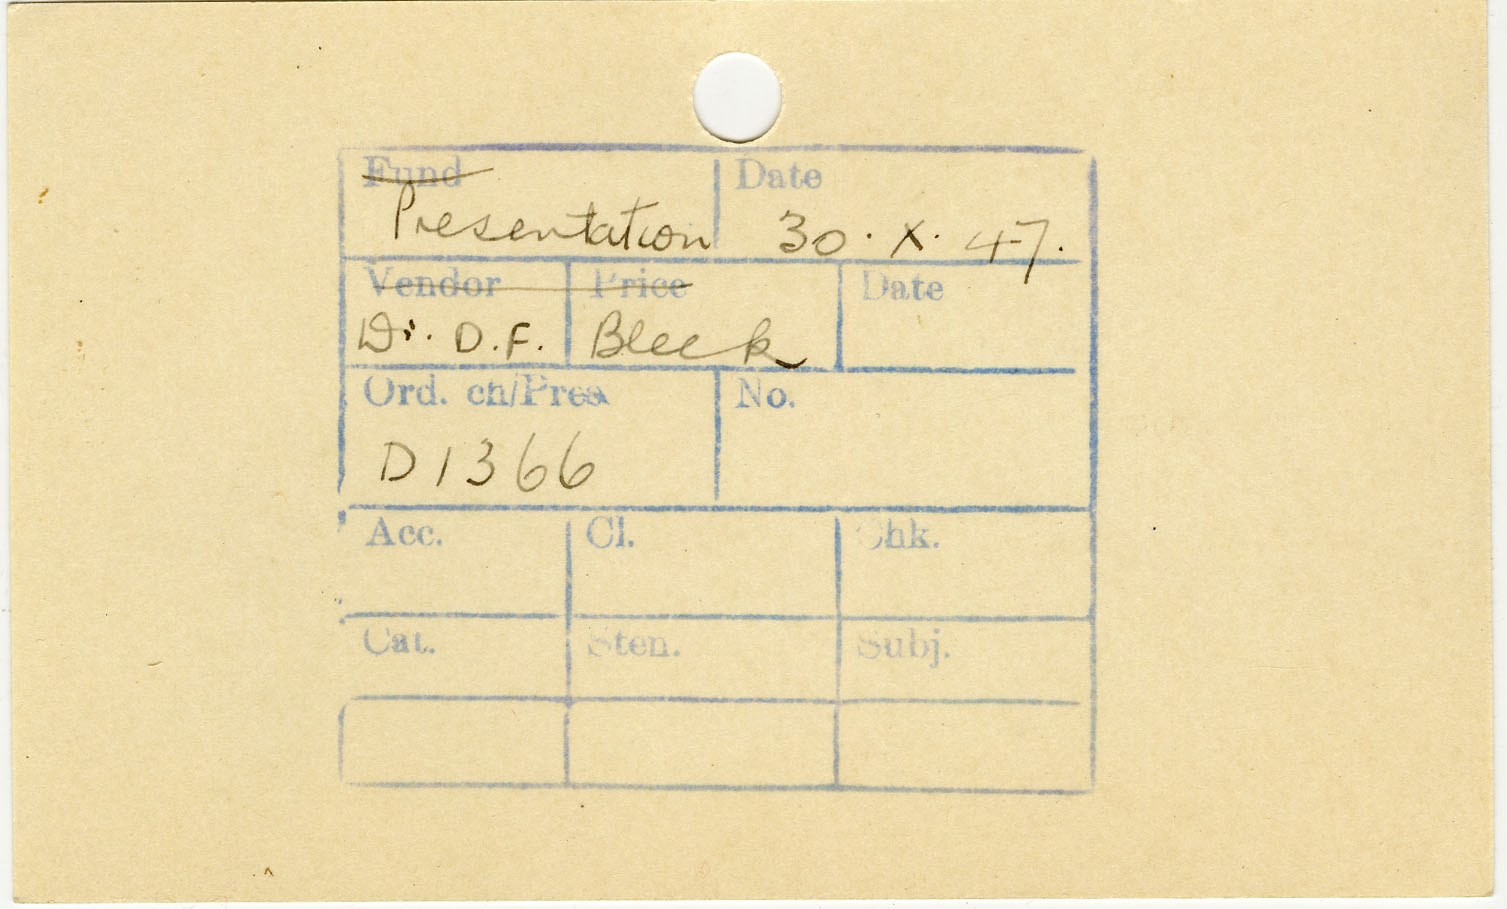 Fund Date
Presentation 30. X. 47.
Vendor Price Date
Dr. D.F. Bleek
Ord. ch/Pres. No.
D1366
Acc. Cl. Chk.
Cat. Sten. Subj.